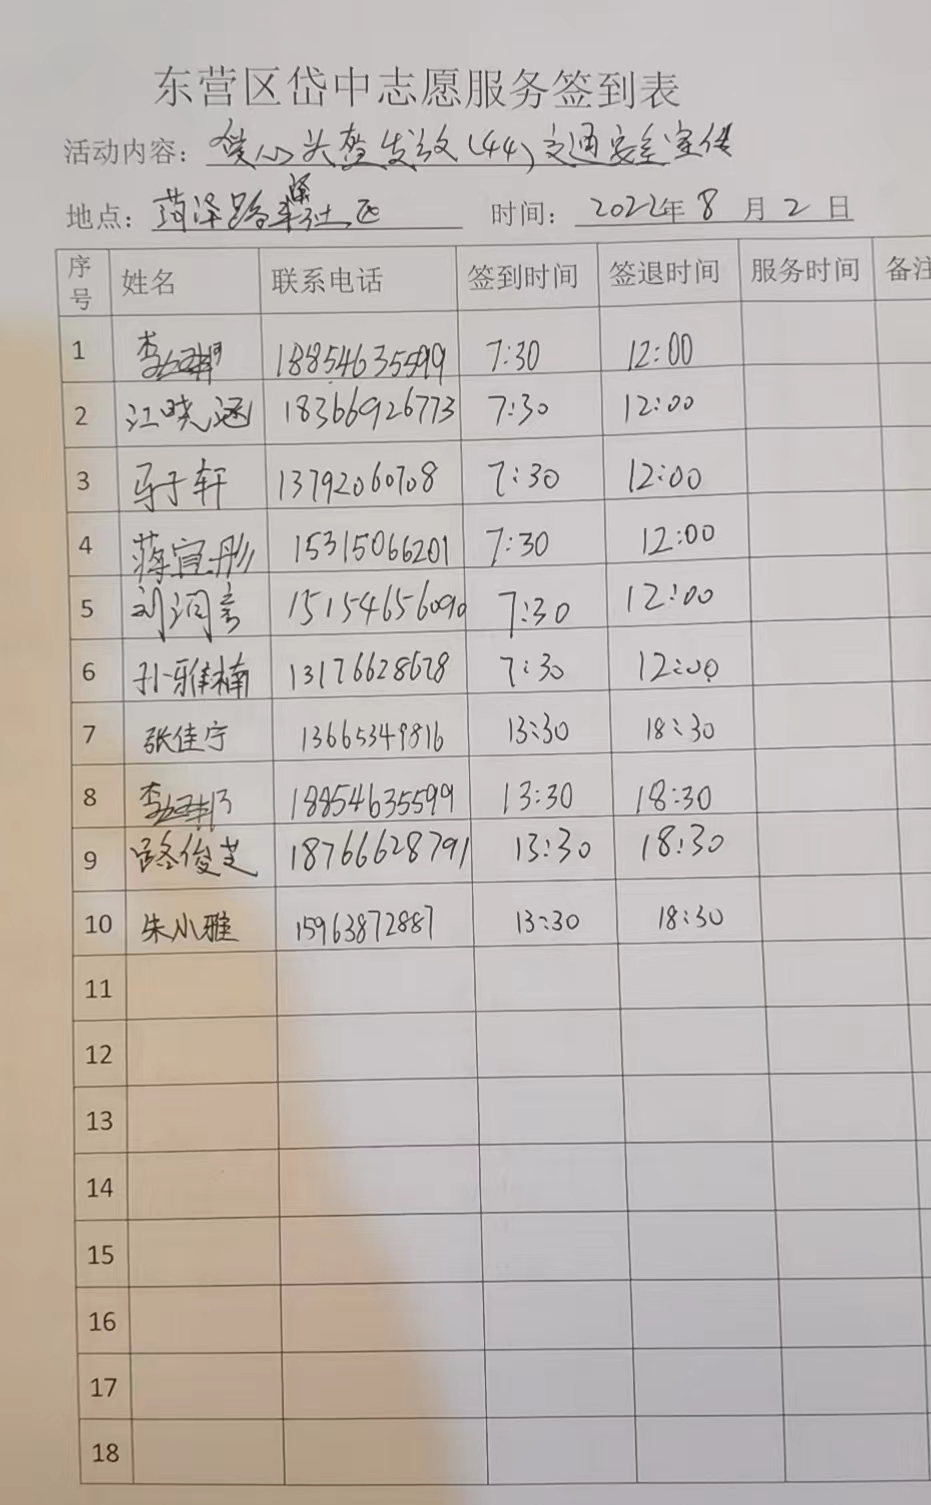 东营区岱中志愿服务签到表
活动内容：爱心头盔发放(44)交通安全宣传
地点：菏泽路社区 时间：2022年8月2日
序号 姓名 联系电话 签到时间 签退时间 服务时间 备注
1 李 18854635599 7:30 12:00
2 江晓涵 18366926773 7:30 12:00
3 马子轩 13792060708 7:30 12:00
4 蒋宜彤 15315066201 7:30 12:00
5 刘润 15154656090 7:30 12:00
6 孙雅楠 13176628678 7:30 12:00
7 张佳宁 13665349816 13:30 18:30
8 李 18854635599 13:30 18:30
9 路俊芝 18766628791 13:30 18:30
10 朱小雅 15963872887 13:30 18:30
11
12
13
14
15
16
17
18